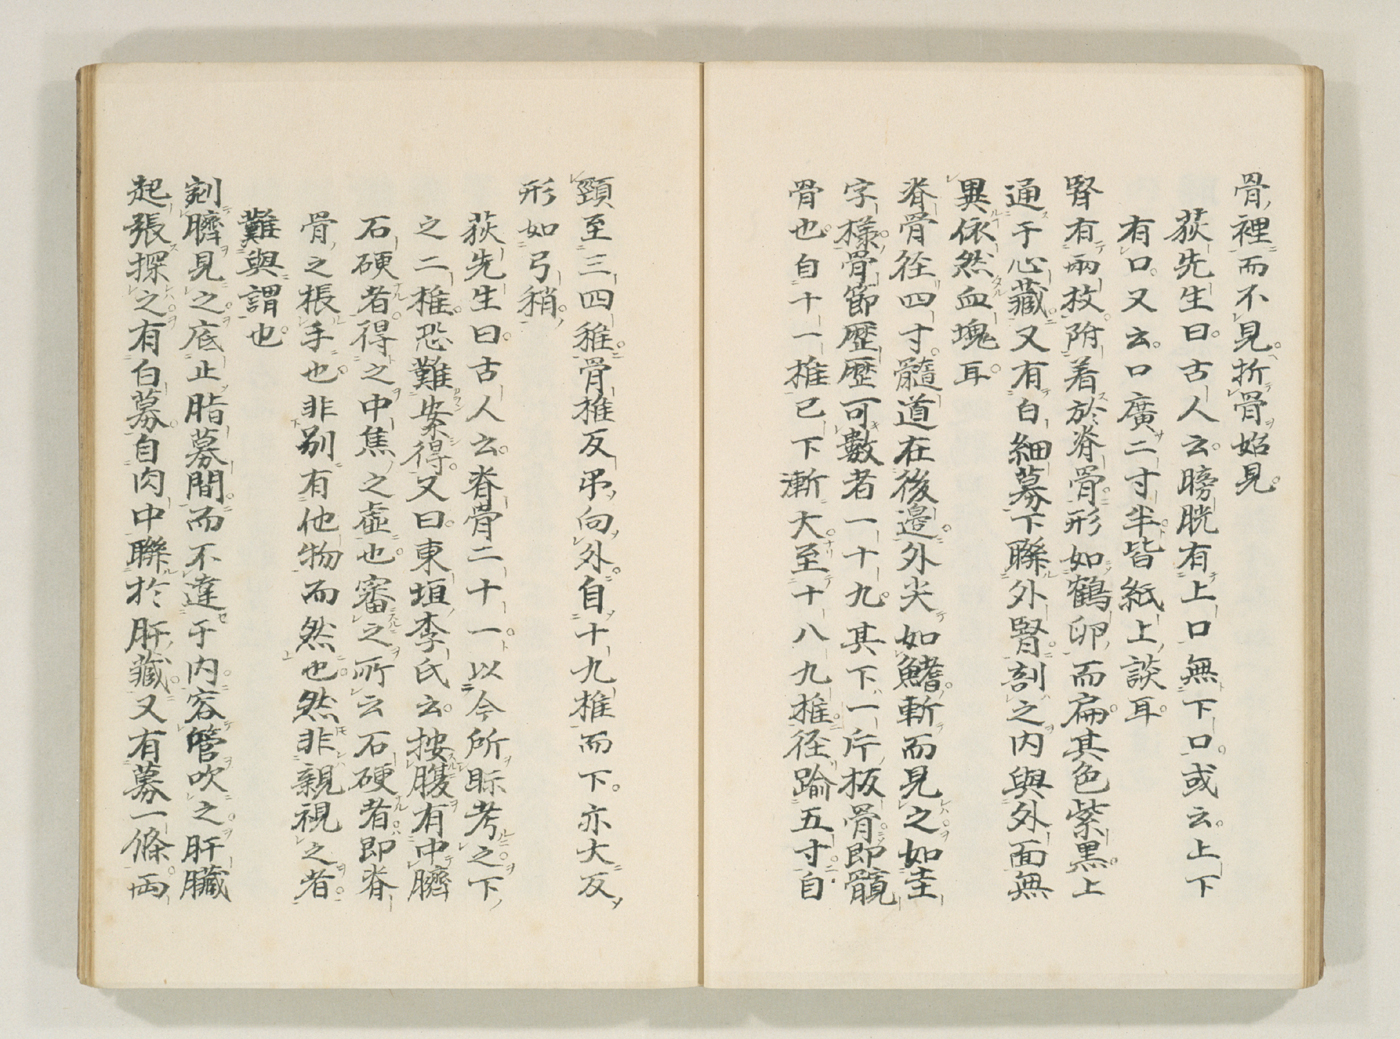 骨裡而不見折骨始見
荻先生曰古人云膀胱有上口無下口或云上下
有口又云口廣二寸半皆紙上談耳
腎有兩枚附着於脊骨形如鶴卵而扁其色紫黒上
通于心藏又有白細募下聯外腎刻之内與外面無
異依然血塊耳
脊骨径四寸髓道在後邊外尖如鰭斬而見之如圭
字様骨節歴歴可數者一十九其下一片板骨即髖
骨也自十一椎已下漸大至十八九椎径踰五寸自
頸至三四稚骨椎反弔向外自十九椎而下亦大反
形如弓稍
荻先生曰古人云脊骨二十一以今所眎考之下
之二椎恐難案得又曰東垣李氏云按腹有中臍
石硬者得之中焦之虚也審之所云石硬者即脊
骨之棖手也非别有他物而然也然非親視之者
難與謂也
剖臍見之底止脂募間而不達于内容管吹之肝臟
起張探之有白募自肉中聯於肝藏又有募一條両